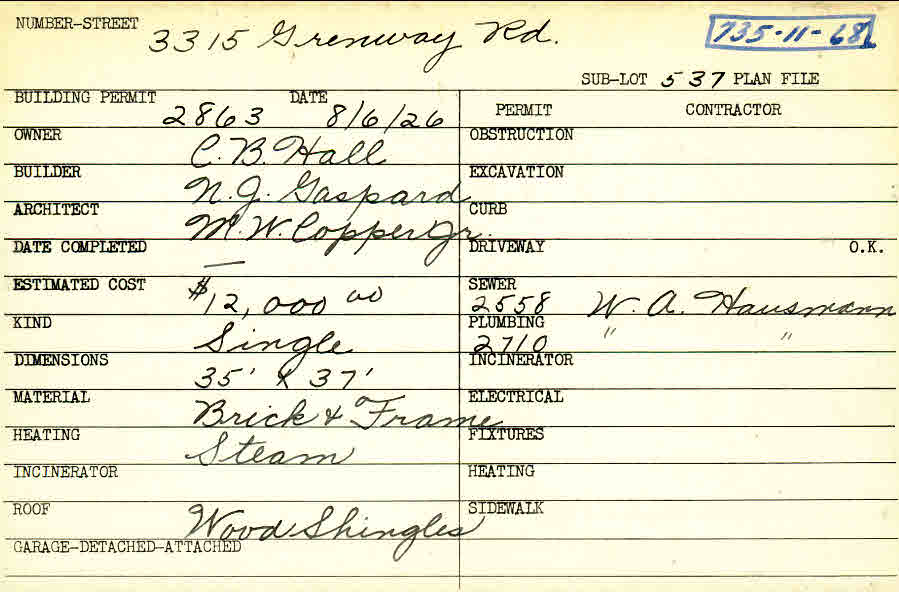 NUMBER-STREET 3315 Grenway Rd. 735-11-68
SUB-LOT 537 PLAN FILE
BUILDING PERMIT 2863 DATE 8/6/26 PERMIT CONTRACTOR
OWNER C. B. Hall OBSTRUCTION
BUILDER N. J. Gaspard EXCAVATION
ARCHITECT M. W. Copper Jr. CURB
DATE COMPLETED — DRIVEWAY O.K.
ESTIMATED COST $12,000 00 SEWER 2558 W. A. Hausmann
KIND Single PLUMBING 2710 " "
DIMENSIONS 35' x 37' INCINERATOR
MATERIAL Brick & Frame ELECTRICAL
HEATING Steam FIXTURES
INCINERATOR HEATING
ROOF Wood Shingles SIDEWALK
GARAGE-DETACHED-ATTACHED